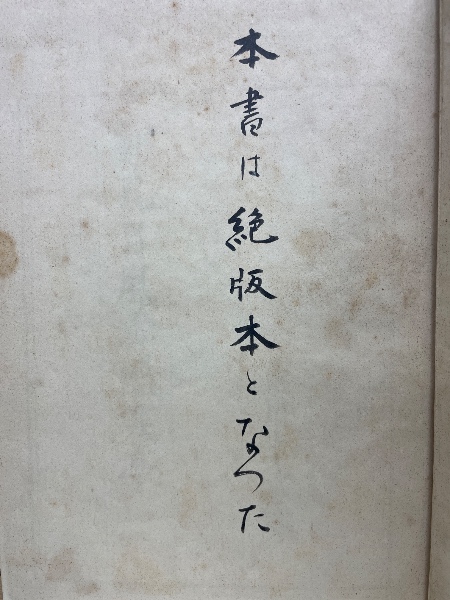 本書は絶版本となつた